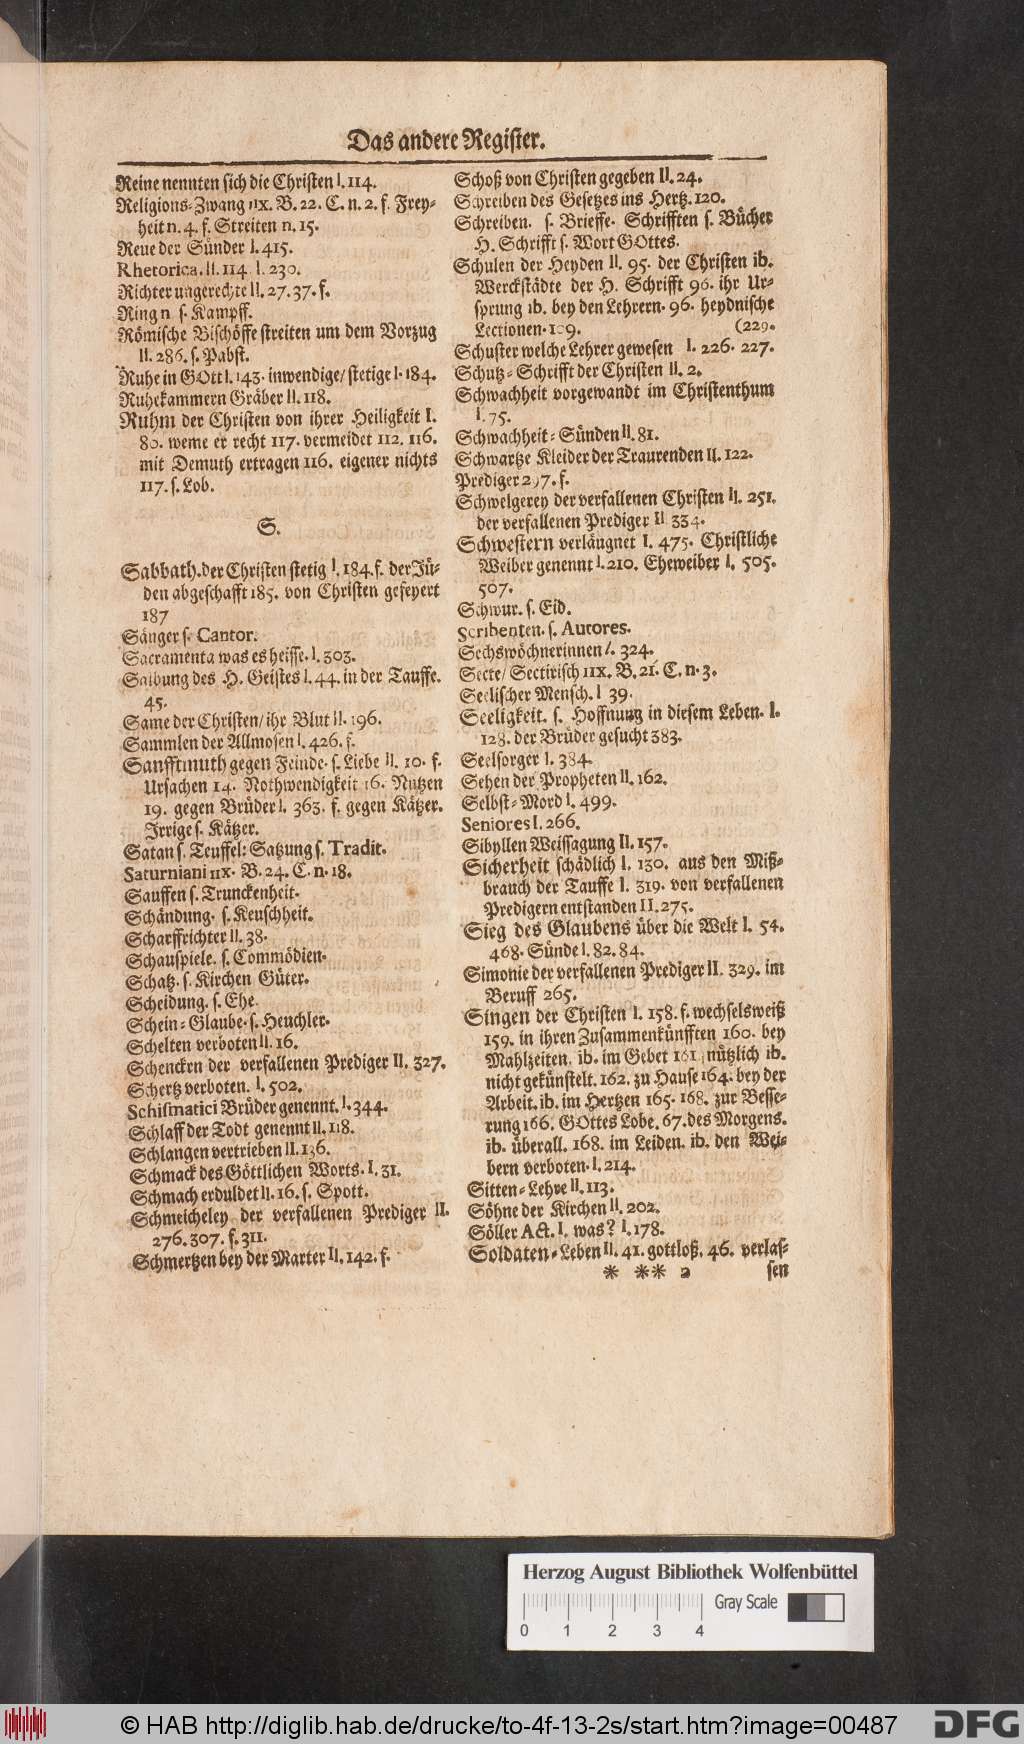 Das andere Register.
Reine nennten sich die Christen I. 114.
Religions-Zwang IIX. B. 22. C. n. 2. f. Frey-
heit n. 4. f. Streiten n. 15.
Reue der Sünder I. 415.
Rhetorica. II. 114. I. 230.
Richter ungerechte II. 27. 37. f.
Ring n s. Kampff.
Römische Bischöffe streiten um dem Vorzug
II. 286. s. Pabst.
Ruhe in GOtt I. 143. inwendige/ stetige I. 184.
Ruhekammern Gräber II. 118.
Ruhm der Christen von ihrer Heiligkeit I.
80. weme er recht 117. vermeidet 112. 116.
mit Demuth ertragen 116. eigener nichts
117. s. Lob.
S.
Sabbath. der Christen stetig I. 184. f. der Jü-
den abgeschafft 185. von Christen gefeyert
187
Sänger s. Cantor.
Sacramenta was es heisse. I. 303.
Salbung des H. Geistes I. 44. in der Tauffe.
45.
Same der Christen/ ihr Blut II. 196.
Sammlen der Allmosen I. 426. f.
Sanfftmuth gegen Feinde. s. Liebe II. 10. f.
Ursachen 14. Nothwendigkeit 16. Nutzen
19. gegen Brüder I. 363. f. gegen Kätzer.
Irrige s. Kätzer.
Satan s. Teuffel: Satzung s. Tradit.
Saturniani IIX. B. 24. C. n. 18.
Sauffen s. Trunckenheit.
Schändung. s. Keuschheit.
Scharffrichter II. 38.
Schauspiele. s. Commödien.
Schatz. s. Kirchen Güter.
Scheidung. s. Ehe.
Schein-Glaube. s. Heuchler.
Schelten verboten II. 16.
Schencken der verfallenen Prediger II. 327.
Schertz verboten. I. 502.
Schismatici Brüder genennt. I. 344.
Schlaff der Todt genennt II. 118.
Schlangen vertrieben II. 136.
Schmack des Göttlichen Worts. I. 31.
Schmach erduldet II. 16. s. Spott.
Schmeicheley der verfallenen Prediger II.
276. 307. f. 311.
Schmertzen bey der Marter II. 142. f.
Schoß von Christen gegeben II. 24.
Schreiben des Gesetzes ins Hertz. 120.
Schreiben. s. Brieffe. Schrifften s. Bücher
H. Schrifft s. Wort GOttes.
Schulen der Heyden II. 95. der Christen ib.
Werckstädte der H. Schrifft 96. ihr Ur-
sprung ib. bey den Lehrern. 96. heydnische
Lectionen. 109. (229.
Schuster welche Lehrer gewesen I. 226. 227.
Schutz-Schrifft der Christen II. 2.
Schwachheit vorgewandt im Christenthum
I. 75.
Schwachheit-Sünden II. 81.
Schwartze Kleider der Traurenden II. 122.
Prediger 297. f.
Schwelgerey der verfallenen Christen II. 251.
der verfallenen Prediger II 334.
Schwestern verläugnet I. 475. Christliche
Weiber genennt I. 210. Eheweiber I. 505.
507.
Schwur. s. Eid.
Scribenten. s. Autores.
Sechswöchnerinnen I. 324.
Secte/ Sectirisch IIX. B. 21. C. n. 3.
Seelischer Mensch. I 39.
Seeligkeit. s. Hoffnung in diesem Leben. I.
128. der Brüder gesucht 383.
Seelsorger I. 384.
Sehen der Propheten II. 162.
Selbst-Mord I. 499.
Seniores I. 266.
Sibyllen Weissagung II. 157.
Sicherheit schädlich I. 130. aus den Miß-
brauch der Tauffe I. 319. von verfallenen
Predigern entstanden II. 275.
Sieg des Glaubens über die Welt I. 54.
468. Sünde I. 82. 84.
Simonie der verfallenen Prediger II. 329. im
Beruff 265.
Singen der Christen I. 158. f. wechselsweiß
159. in ihren Zusammenkünfften 160. bey
Mahlzeiten. ib. im Gebet 161. nützlich ib.
nicht gekünstelt. 162. zu Hause 164. bey der
Arbeit. ib. im Hertzen 165. 168. zur Besse-
rung 166. GOttes Lobe. 67. des Morgens.
ib. überall. 168. im Leiden. ib. den Wei-
bern verboten. I. 214.
Sitten-Lehre II. 113.
Söhne der Kirchen II. 202.
Söller Act. I. was? I. 178.
Soldaten-Leben II. 41. gottloß. 46. verlas-
* ** 2 sen
Herzog August Bibliothek Wolfenbüttel
Gray Scale
0 1 2 3 4
© HAB http://diglib.hab.de/drucke/to-4f-13-2s/start.htm?image=00487
DFG